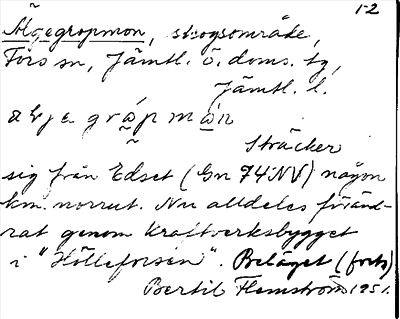 1-2
Älgegropmon, skogsområde,
Fors sn, Jämtl. ö. doms. tg,
Jämtl. l.
Sträcker
sig från Edset (Gn 74NV) någon
km. norrut. Nu alldeles föränd-
rat genom kraftverksbygget
i "Hölleforsen". Beläget (forts)
Bertil Flemström 1951.